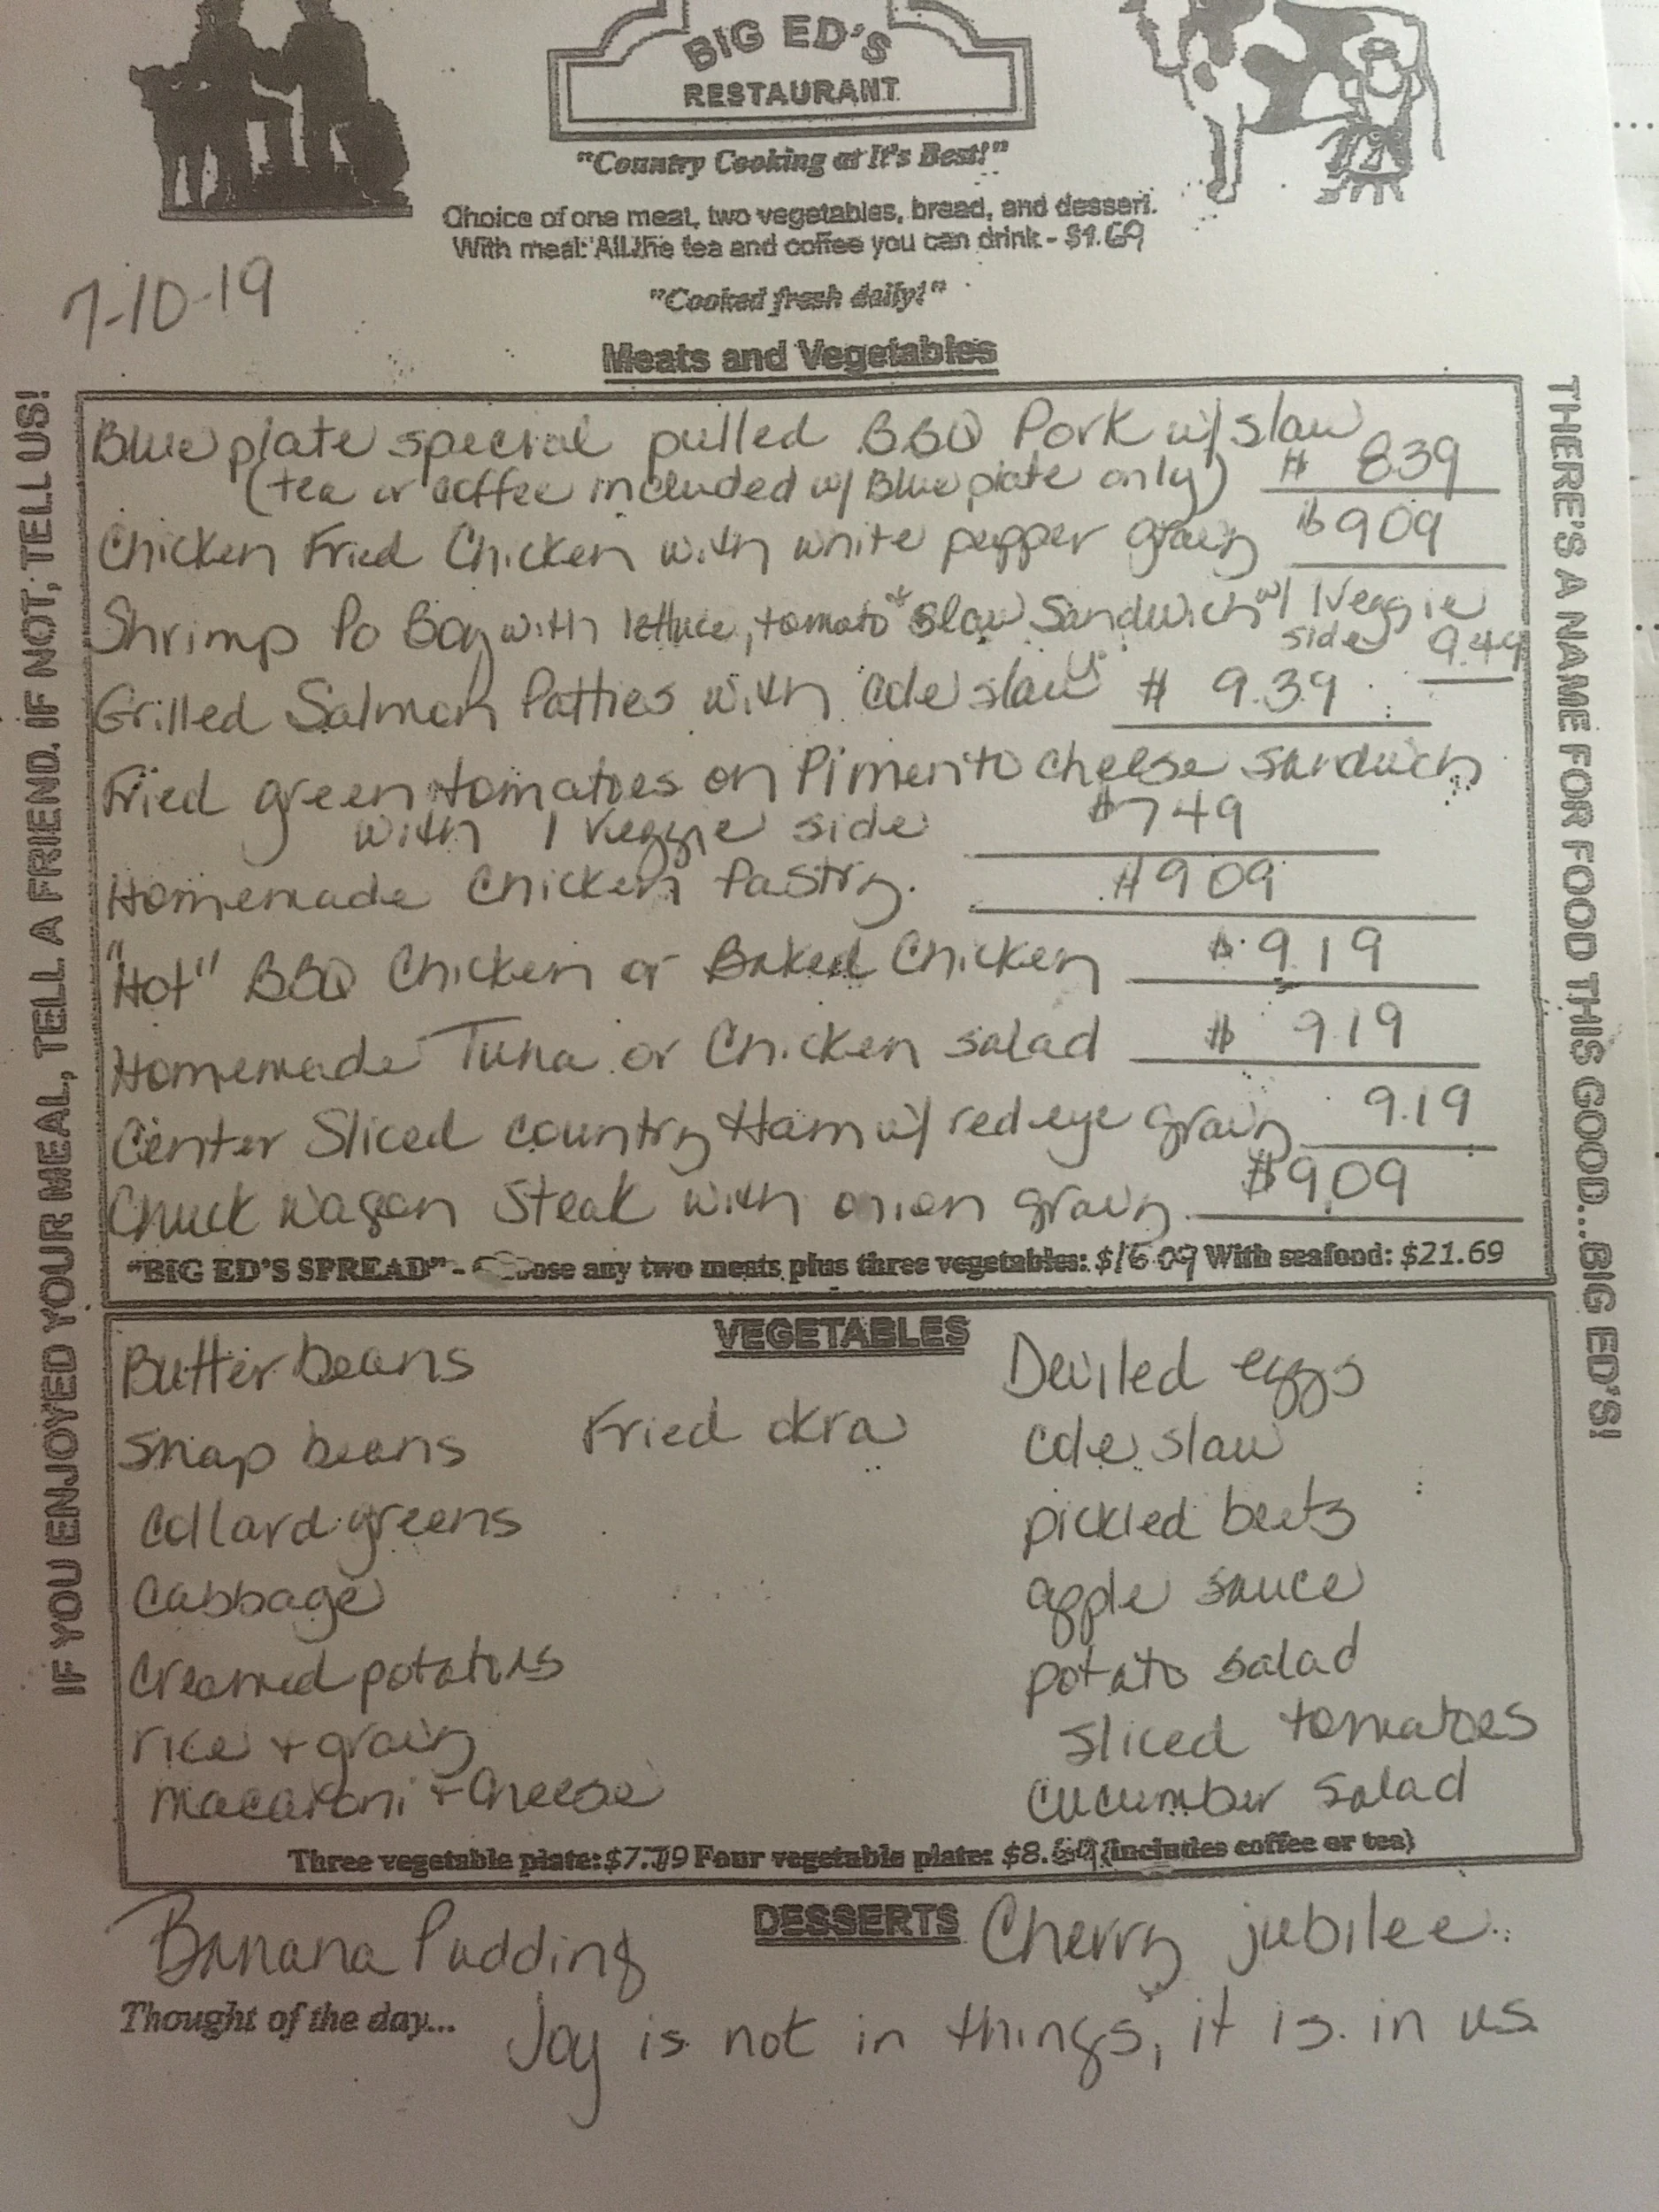 BIG ED'S
RESTAURANT
"Country Cooking at It's Best!"
Choice of one meat, two vegetables, bread, and dessert.
With meal: All the tea and coffee you can drink - $1.69
"Cooked fresh daily!"
7-10-19
Meats and Vegetables
IF YOU ENJOYED YOUR MEAL, TELL A FRIEND. IF NOT, TELL US!
THERE'S A NAME FOR FOOD THIS GOOD...BIG ED'S!
Blue plate special pulled BBQ Pork w/ slaw
(tea or coffee included w/ Blue plate only) $ 839
Chicken Fried Chicken with white pepper gravy $909
Shrimp Po Boy with lettuce, tomato + slaw Sandwich w/ 1 veggie
side 9.49
Grilled Salmon Patties with cole slaw $ 9.39
Fried green tomatoes on Pimento cheese sandwich
with 1 veggie side $749
Homemade Chicken Pastry. $909
"Hot" BBQ Chicken or Baked Chicken $ 919
Homemade Tuna or Chicken salad $ 919
Center Sliced country Ham w/ red eye gravy 9.19
Chuck wagon Steak with onion gravy $909
"BIG ED'S SPREAD" - any two meats plus three vegetables: $16.09 With seafood: $21.69
VEGETABLES
Butter beans
Snap beans
Collard greens
Cabbage
Creamed potatoes
rice + gravy
macaroni + Cheese
Fried okra
Deviled eggs
cole slaw
pickled beets
apple sauce
potato salad
sliced tomatoes
cucumber salad
Three vegetable plate: Four vegetable plate: (includes coffee or tea)
DESSERTS
Banana Pudding
Cherry jubilee
Thought of the day... Joy is not in things, it is in us